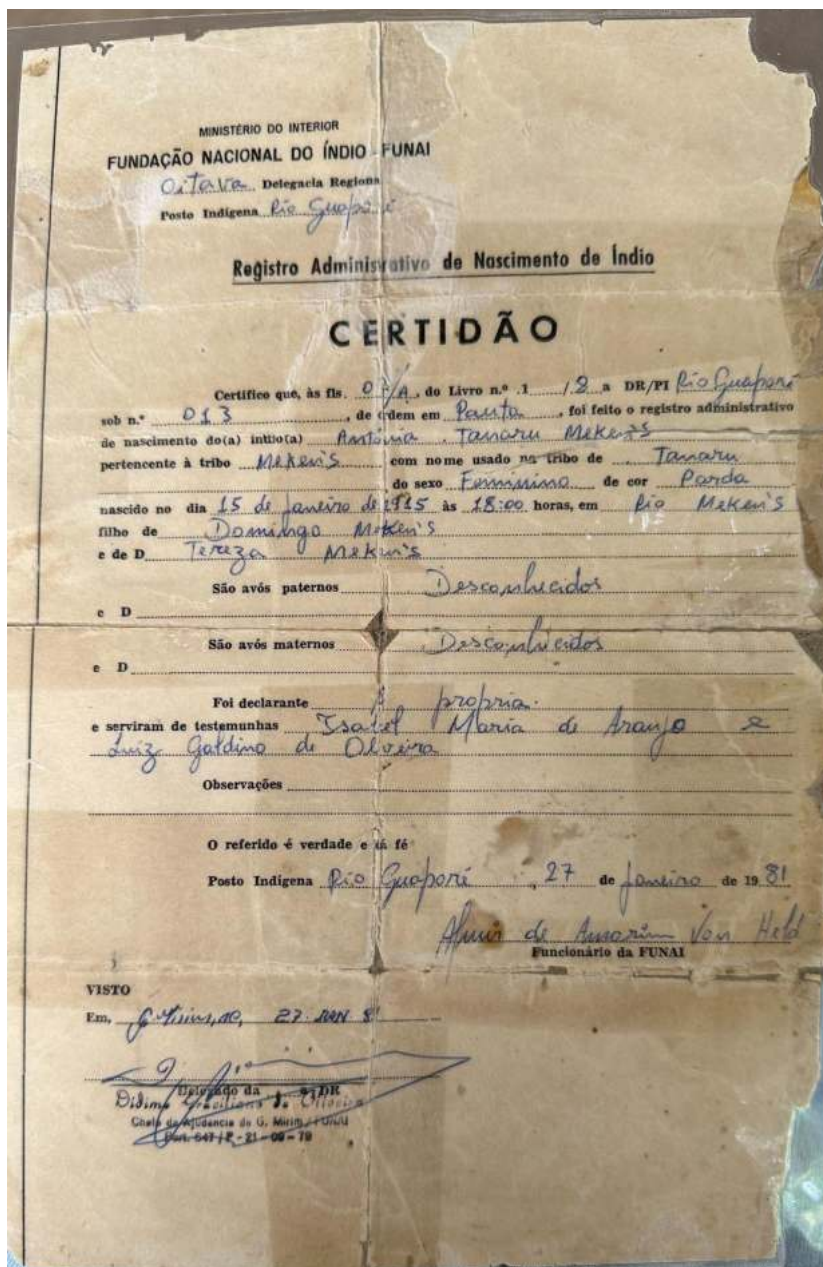 MINISTÉRIO DO INTERIOR
FUNDAÇÃO NACIONAL DO ÍNDIO - FUNAI
Oitava Delegacia Regiona
Posto Indígena Rio Guaporé
Registro Administrativo de Nascimento de Índio
CERTIDÃO
Certifico que, às fls. 07/A, do Livro n.º 1 / 8 a DR/PI Rio Guaporé
sob n.º 013, de ordem em Pauta, foi feito o registro administrativo
de nascimento do(a) indío(a) Antônia Tanaru Meken's
pertencente à tribo Meken's com nome usado na tribo de Tanaru
do sexo Feminino de cor Parda
nascido no dia 15 de Janeiro de 1915 às 18:00 horas, em Rio Meken's
filho de Domingo Meken's
e de D Tereza Meken's
São avós paternos Desconhecidos
e D
São avós maternos Desconhecidos
e D
Foi declarante A propria.
e serviram de testemunhas Isabel Maria de Araujo e
Luiz Galdino de Oliveira
Observações
O referido é verdade e fé
Posto Indígena Rio Guaporé, 27 de Janeiro de 1981
de Amorim Von Held
Funcionário da FUNAI
VISTO
Em, G. Mirim, 27 JAN 81
Delegado da DR
Didimo Graciliano de Oliveira
Chefe da Ajudancia de G. Mirim / FUNAI
Port. 647 / P - 21 - 09 - 79